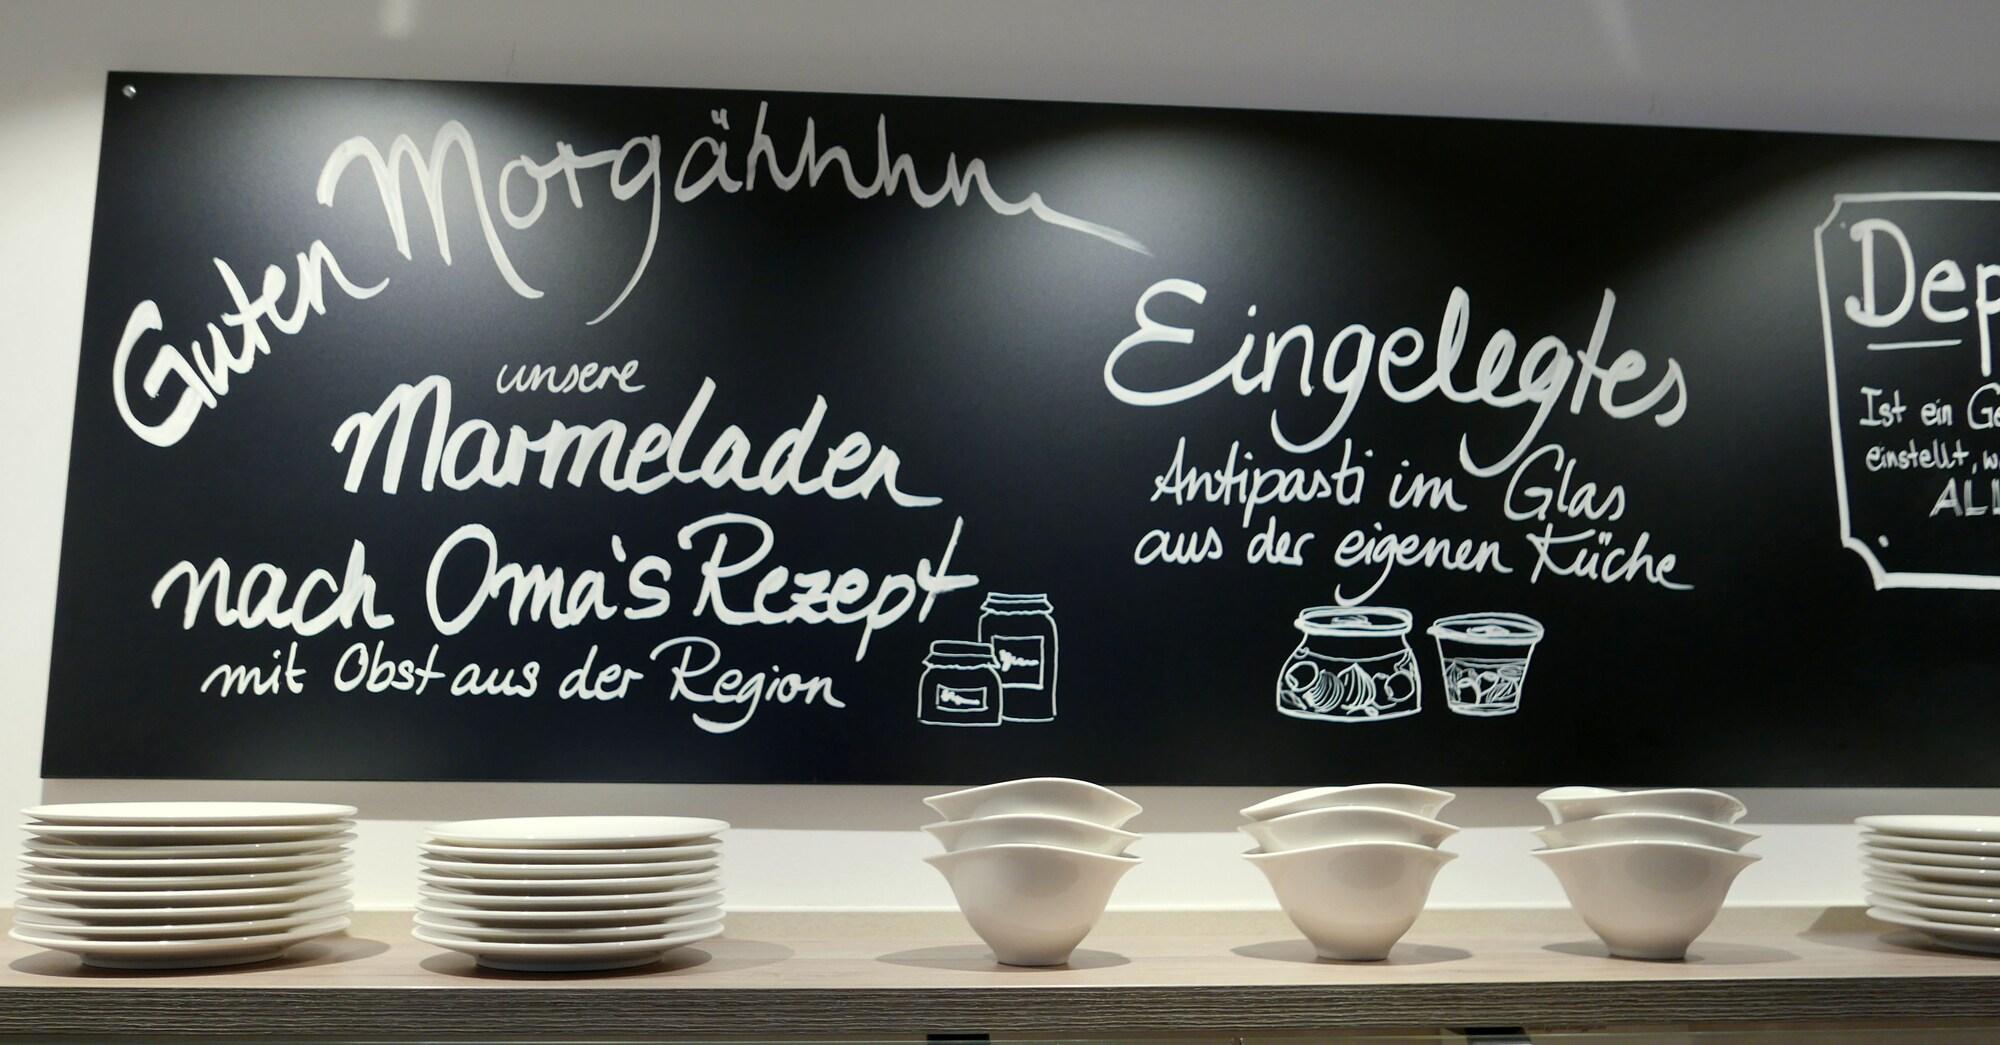 Guten Morgähhhn
unsere
Marmeladen
nach Oma's Rezept
mit Obst aus der Region
Eingelegtes
Antipasti im Glas
aus der eigenen Küche
Dep
Ist ein Ge
einstellt, w
ALL